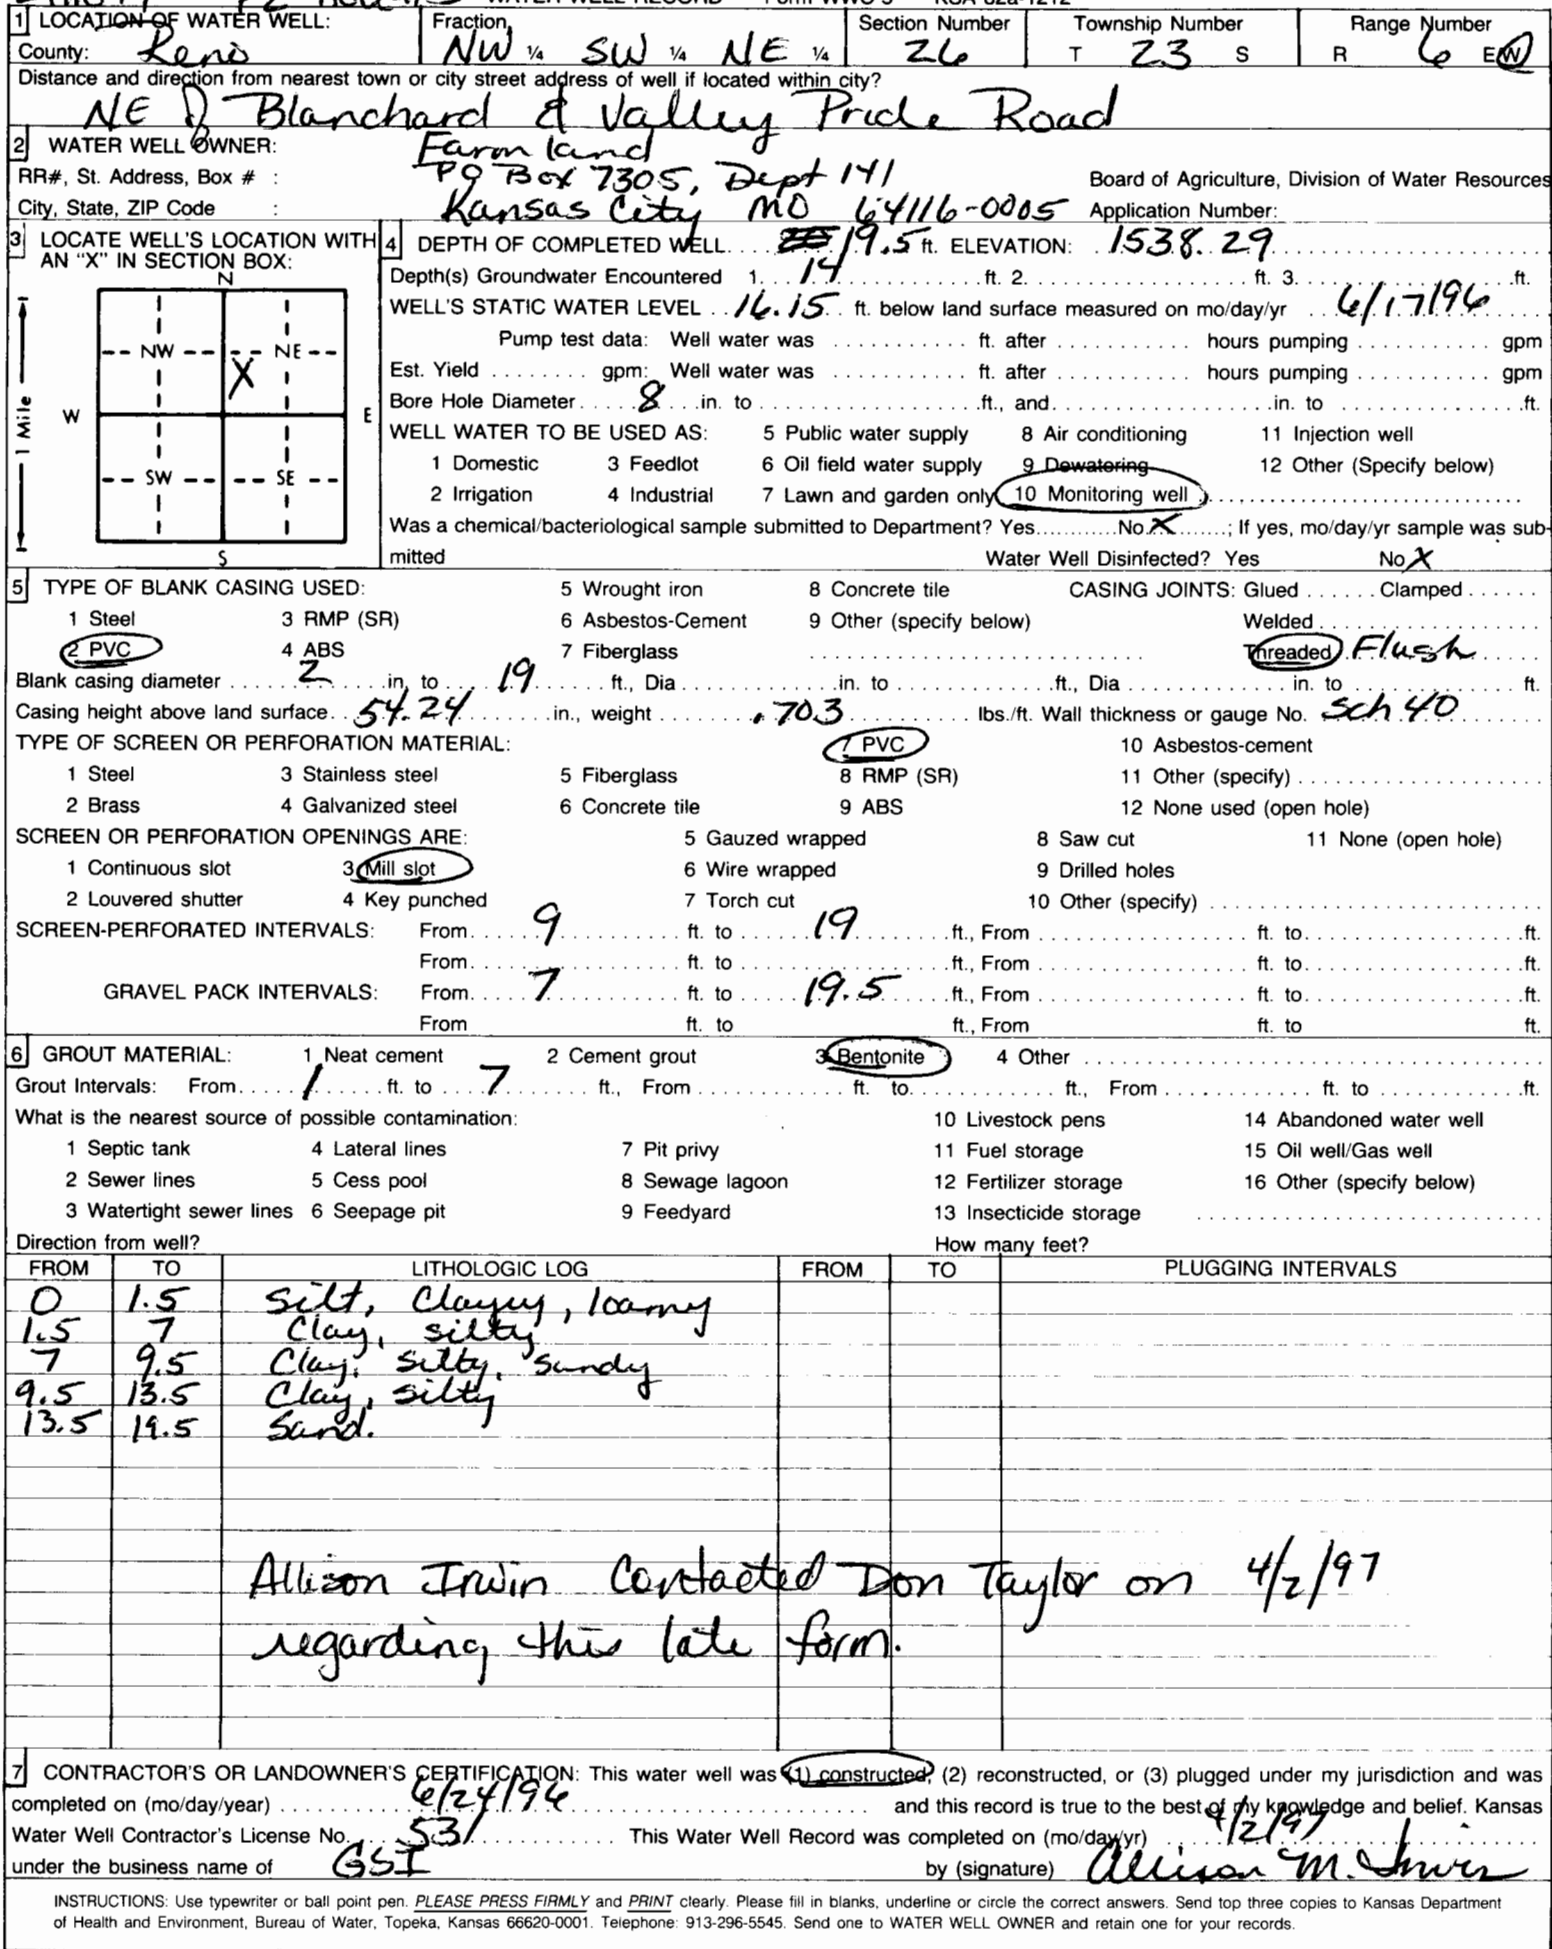 WATER WELL RECORD Form WWC-5 KSA 82a-1212
1 LOCATION OF WATER WELL: Fraction Section Number Township Number Range Number
County: Reno NW ¼ SW ¼ NE ¼ 26 T 23 S R 6 E/W
Distance and direction from nearest town or city street address of well if located within city?
NE of Blanchard & Valley Pride Road
2 WATER WELL OWNER: Farmland
RR#, St. Address, Box # : PO Box 7305, Dept 141 Board of Agriculture, Division of Water Resources
City, State, ZIP Code : Kansas City MO 64116-0005 Application Number:
3 LOCATE WELL'S LOCATION WITH AN "X" IN SECTION BOX:
N
NW NE
X
W E
1 Mile
SW SE
S
4 DEPTH OF COMPLETED WELL 19.5 ft. ELEVATION: 1538.29
Depth(s) Groundwater Encountered 1. 14 ft. 2. ft. 3. ft.
WELL'S STATIC WATER LEVEL 16.15 ft. below land surface measured on mo/day/yr 6/17/96
Pump test data: Well water was ft. after hours pumping gpm
Est. Yield gpm: Well water was ft. after hours pumping gpm
Bore Hole Diameter 8 in. to ft., and in. to ft.
WELL WATER TO BE USED AS: 5 Public water supply 8 Air conditioning 11 Injection well
1 Domestic 3 Feedlot 6 Oil field water supply 9 Dewatering 12 Other (Specify below)
2 Irrigation 4 Industrial 7 Lawn and garden only 10 Monitoring well
Was a chemical/bacteriological sample submitted to Department? Yes No X ; If yes, mo/day/yr sample was sub-
mitted Water Well Disinfected? Yes No X
5 TYPE OF BLANK CASING USED: 5 Wrought iron 8 Concrete tile CASING JOINTS: Glued Clamped
1 Steel 3 RMP (SR) 6 Asbestos-Cement 9 Other (specify below) Welded
2 PVC 4 ABS 7 Fiberglass Threaded Flush
Blank casing diameter 2 in. to 19 ft., Dia in. to ft., Dia in. to ft.
Casing height above land surface 54.24 in., weight .703 lbs./ft. Wall thickness or gauge No. Sch 40
TYPE OF SCREEN OR PERFORATION MATERIAL: 7 PVC 10 Asbestos-cement
1 Steel 3 Stainless steel 5 Fiberglass 8 RMP (SR) 11 Other (specify)
2 Brass 4 Galvanized steel 6 Concrete tile 9 ABS 12 None used (open hole)
SCREEN OR PERFORATION OPENINGS ARE: 5 Gauzed wrapped 8 Saw cut 11 None (open hole)
1 Continuous slot 3 Mill slot 6 Wire wrapped 9 Drilled holes
2 Louvered shutter 4 Key punched 7 Torch cut 10 Other (specify)
SCREEN-PERFORATED INTERVALS: From 9 ft. to 19 ft., From ft. to ft.
From ft. to ft., From ft. to ft.
GRAVEL PACK INTERVALS: From 7 ft. to 19.5 ft., From ft. to ft.
From ft. to ft., From ft. to ft.
6 GROUT MATERIAL: 1 Neat cement 2 Cement grout 3 Bentonite 4 Other
Grout Intervals: From 1 ft. to 7 ft., From ft. to ft., From ft. to ft.
What is the nearest source of possible contamination: 10 Livestock pens 14 Abandoned water well
1 Septic tank 4 Lateral lines 7 Pit privy 11 Fuel storage 15 Oil well/Gas well
2 Sewer lines 5 Cess pool 8 Sewage lagoon 12 Fertilizer storage 16 Other (specify below)
3 Watertight sewer lines 6 Seepage pit 9 Feedyard 13 Insecticide storage
Direction from well? How many feet?
FROM TO LITHOLOGIC LOG FROM TO PLUGGING INTERVALS
0 1.5 Silt, Clayey, loamy
1.5 7 Clay, silty
7 9.5 Clay, silty, sandy
9.5 13.5 Clay, silty
13.5 19.5 Sand.
Allison Irwin Contacted Don Taylor on 4/2/97
regarding this late form.
7 CONTRACTOR'S OR LANDOWNER'S CERTIFICATION: This water well was (1) constructed, (2) reconstructed, or (3) plugged under my jurisdiction and was
completed on (mo/day/year) 6/24/96 and this record is true to the best of my knowledge and belief. Kansas
Water Well Contractor's License No. 531 This Water Well Record was completed on (mo/day/yr) 4/2/97
under the business name of GSI by (signature) Allison M. Irwin
INSTRUCTIONS: Use typewriter or ball point pen. PLEASE PRESS FIRMLY and PRINT clearly. Please fill in blanks, underline or circle the correct answers. Send top three copies to Kansas Department
of Health and Environment, Bureau of Water, Topeka, Kansas 66620-0001. Telephone: 913-296-5545. Send one to WATER WELL OWNER and retain one for your records.